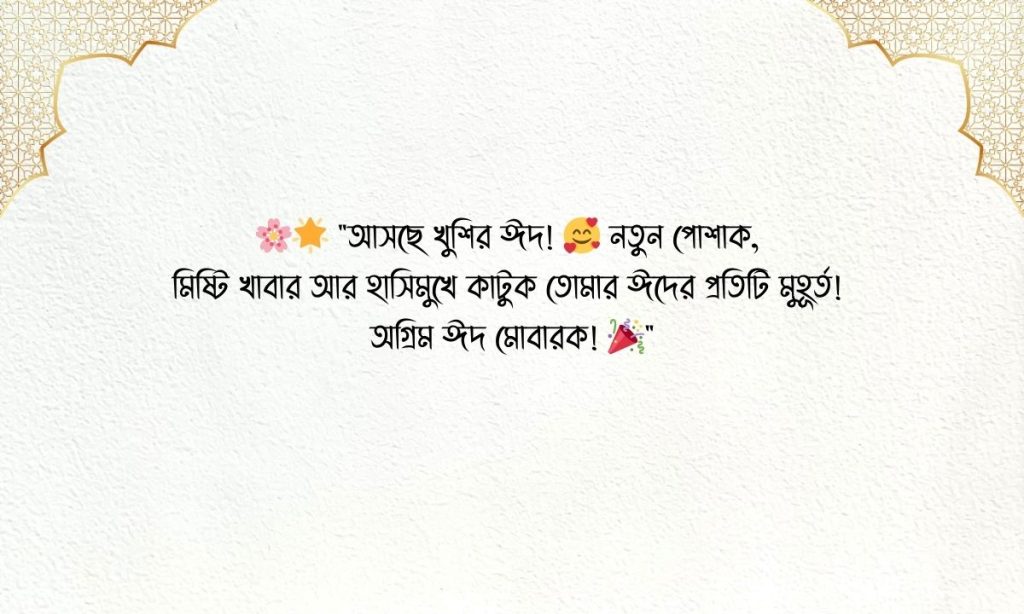 🌸🌟 "আসছে খুশির ঈদ! 🥰 নতুন পোশাক,
মিষ্টি খাবার আর হাসিমুখে কাটুক তোমার ঈদের প্রতিটি মুহূর্ত!
অগ্রিম ঈদ মোবারক! 🎉"